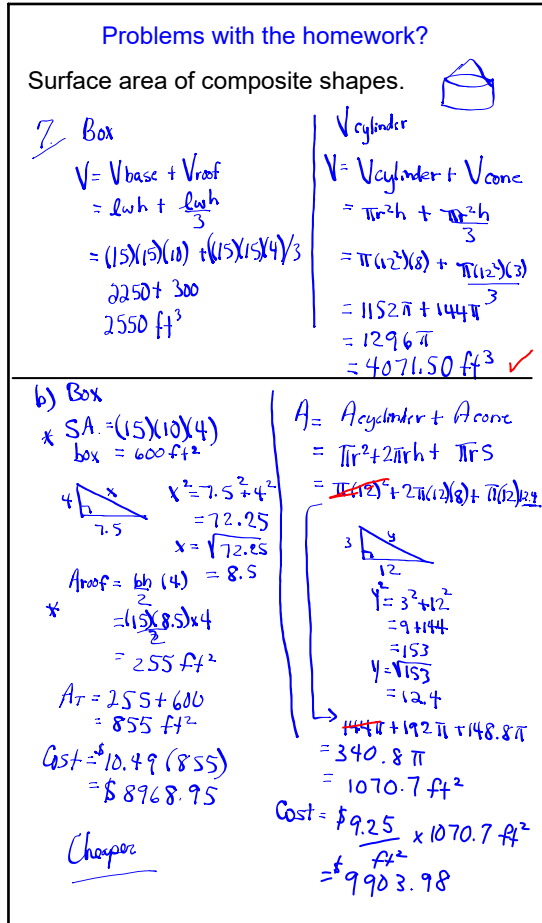 Problems with the homework?
Surface area of composite shapes.
7. Box
V = Vbase + Vroof
= lwh + lwh/3
= (15)(15)(10) + ((15)(15)(4)/3
2250 + 300
2550 ft³
V cylinder
V = Vcylinder + Vcone
= πr²h + πr²h/3
= π(12²)(8) + π(12²)(3)/3
= 1152π + 144π
= 1296π
= 4071.50 ft³ ✓
b) Box
* S.A. = (15)(10)(4)
box = 600 ft²
4 x 7.5
x² = 7.5² + 4²
= 72.25
x = √72.25
= 8.5
* Aroof = bh/2 (4)
= (15)(8.5)/2 x 4
= 255 ft²
AT = 255 + 600
= 855 ft²
Cost = $10.49 (855)
= $8968.95
Cheaper
A = Acyclinder + Acone
= πr² + 2πrh + πrs
= π(12)² + 2π(12)(8) + π(12)12.4
3 y 12
y² = 3² + 12²
= 9 + 144
= 153
y = √153
= 12.4
144π + 192π + 148.8π
= 340.8π
= 1070.7 ft²
Cost = $9.25/ft² x 1070.7 ft²
= $9903.98